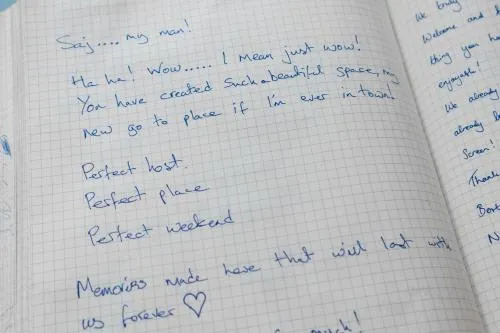 Saj.... my man!
Ha ha! Wow..... I mean just wow!
You have created such a beautiful space, my
new go to place if I'm ever in town!
Perfect host.
Perfect place
Perfect weekend
Memories made here that will last with
us forever ♡
much!
We truly
Welcome and
thing you ha
enjoyable!
We already
already
Screen!
Thank